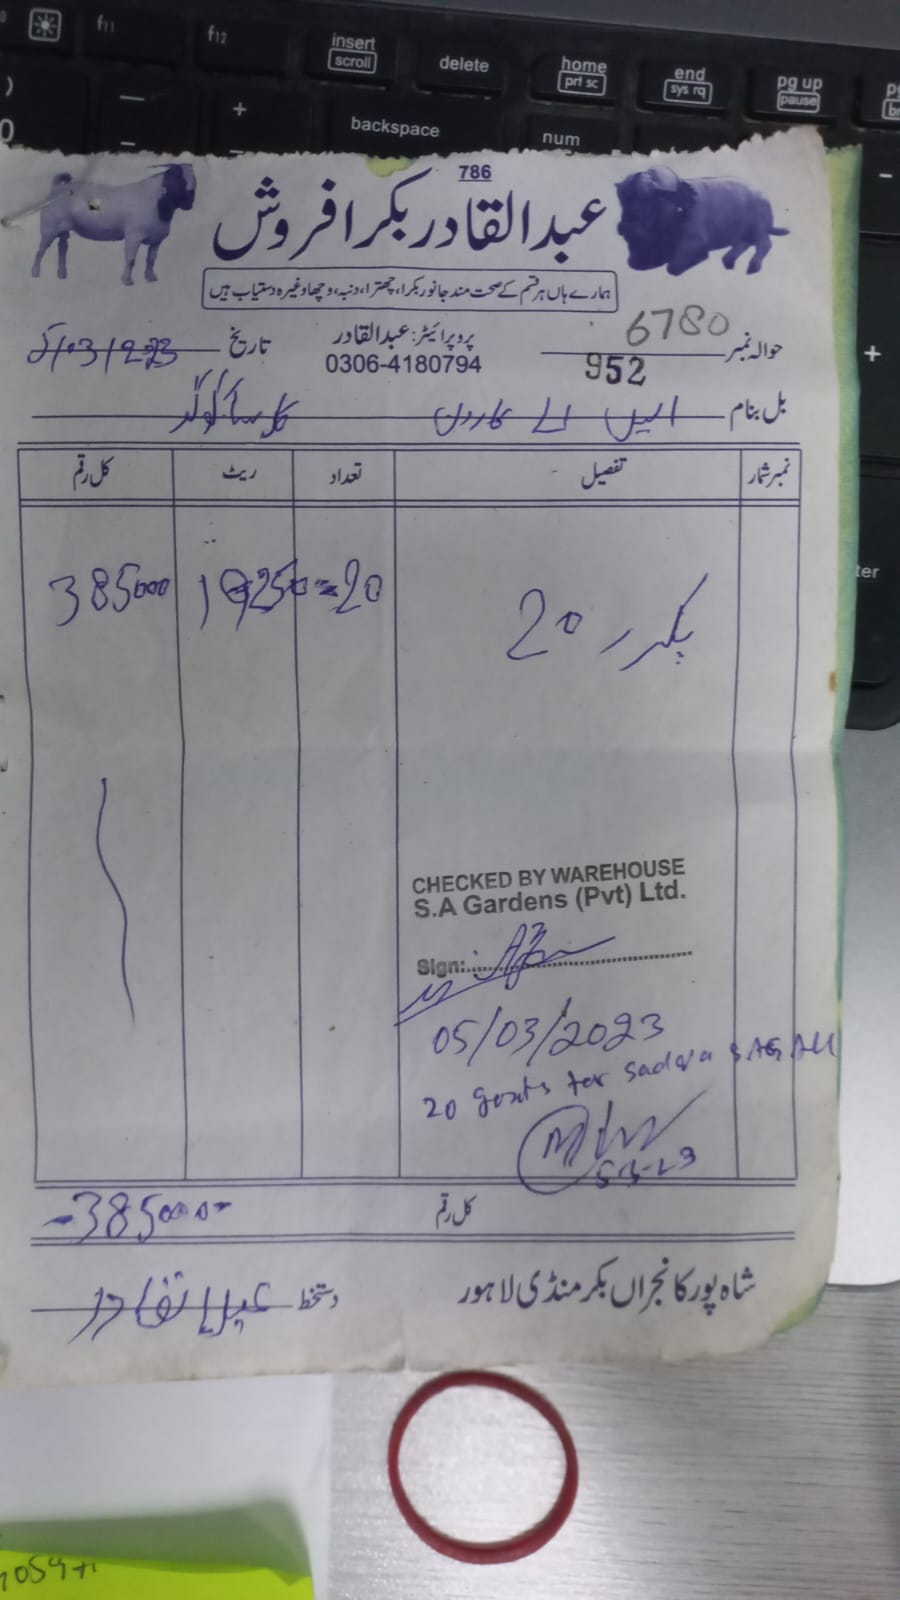 f11
f12
insert
scroll
delete
home
prt sc
end
sys rq
pg up
pause
backspace
num
786
عبدالقادر بکرا فروش
ہمارے ہاں ہر قسم کے صحت مند جانور بکرا، چھترا، دنبہ، وچھا وغیرہ دستیاب ہیں
حوالہ نمبر 6780
952
پروپرائیٹر: عبدالقادر
0306-4180794
تاریخ 5/03/2023
بل بنام ایس اے گارڈن
نمبر شمار تفصیل تعداد ریٹ کل رقم
20 20 385000
CHECKED BY WAREHOUSE
S.A Gardens (Pvt) Ltd.
Sign:
05/03/2023
20 goats for sadqa
5-3-23
کل رقم 385000
شاہ پور کانجراں بکر منڈی لاہور
دستخط عبدالقادر